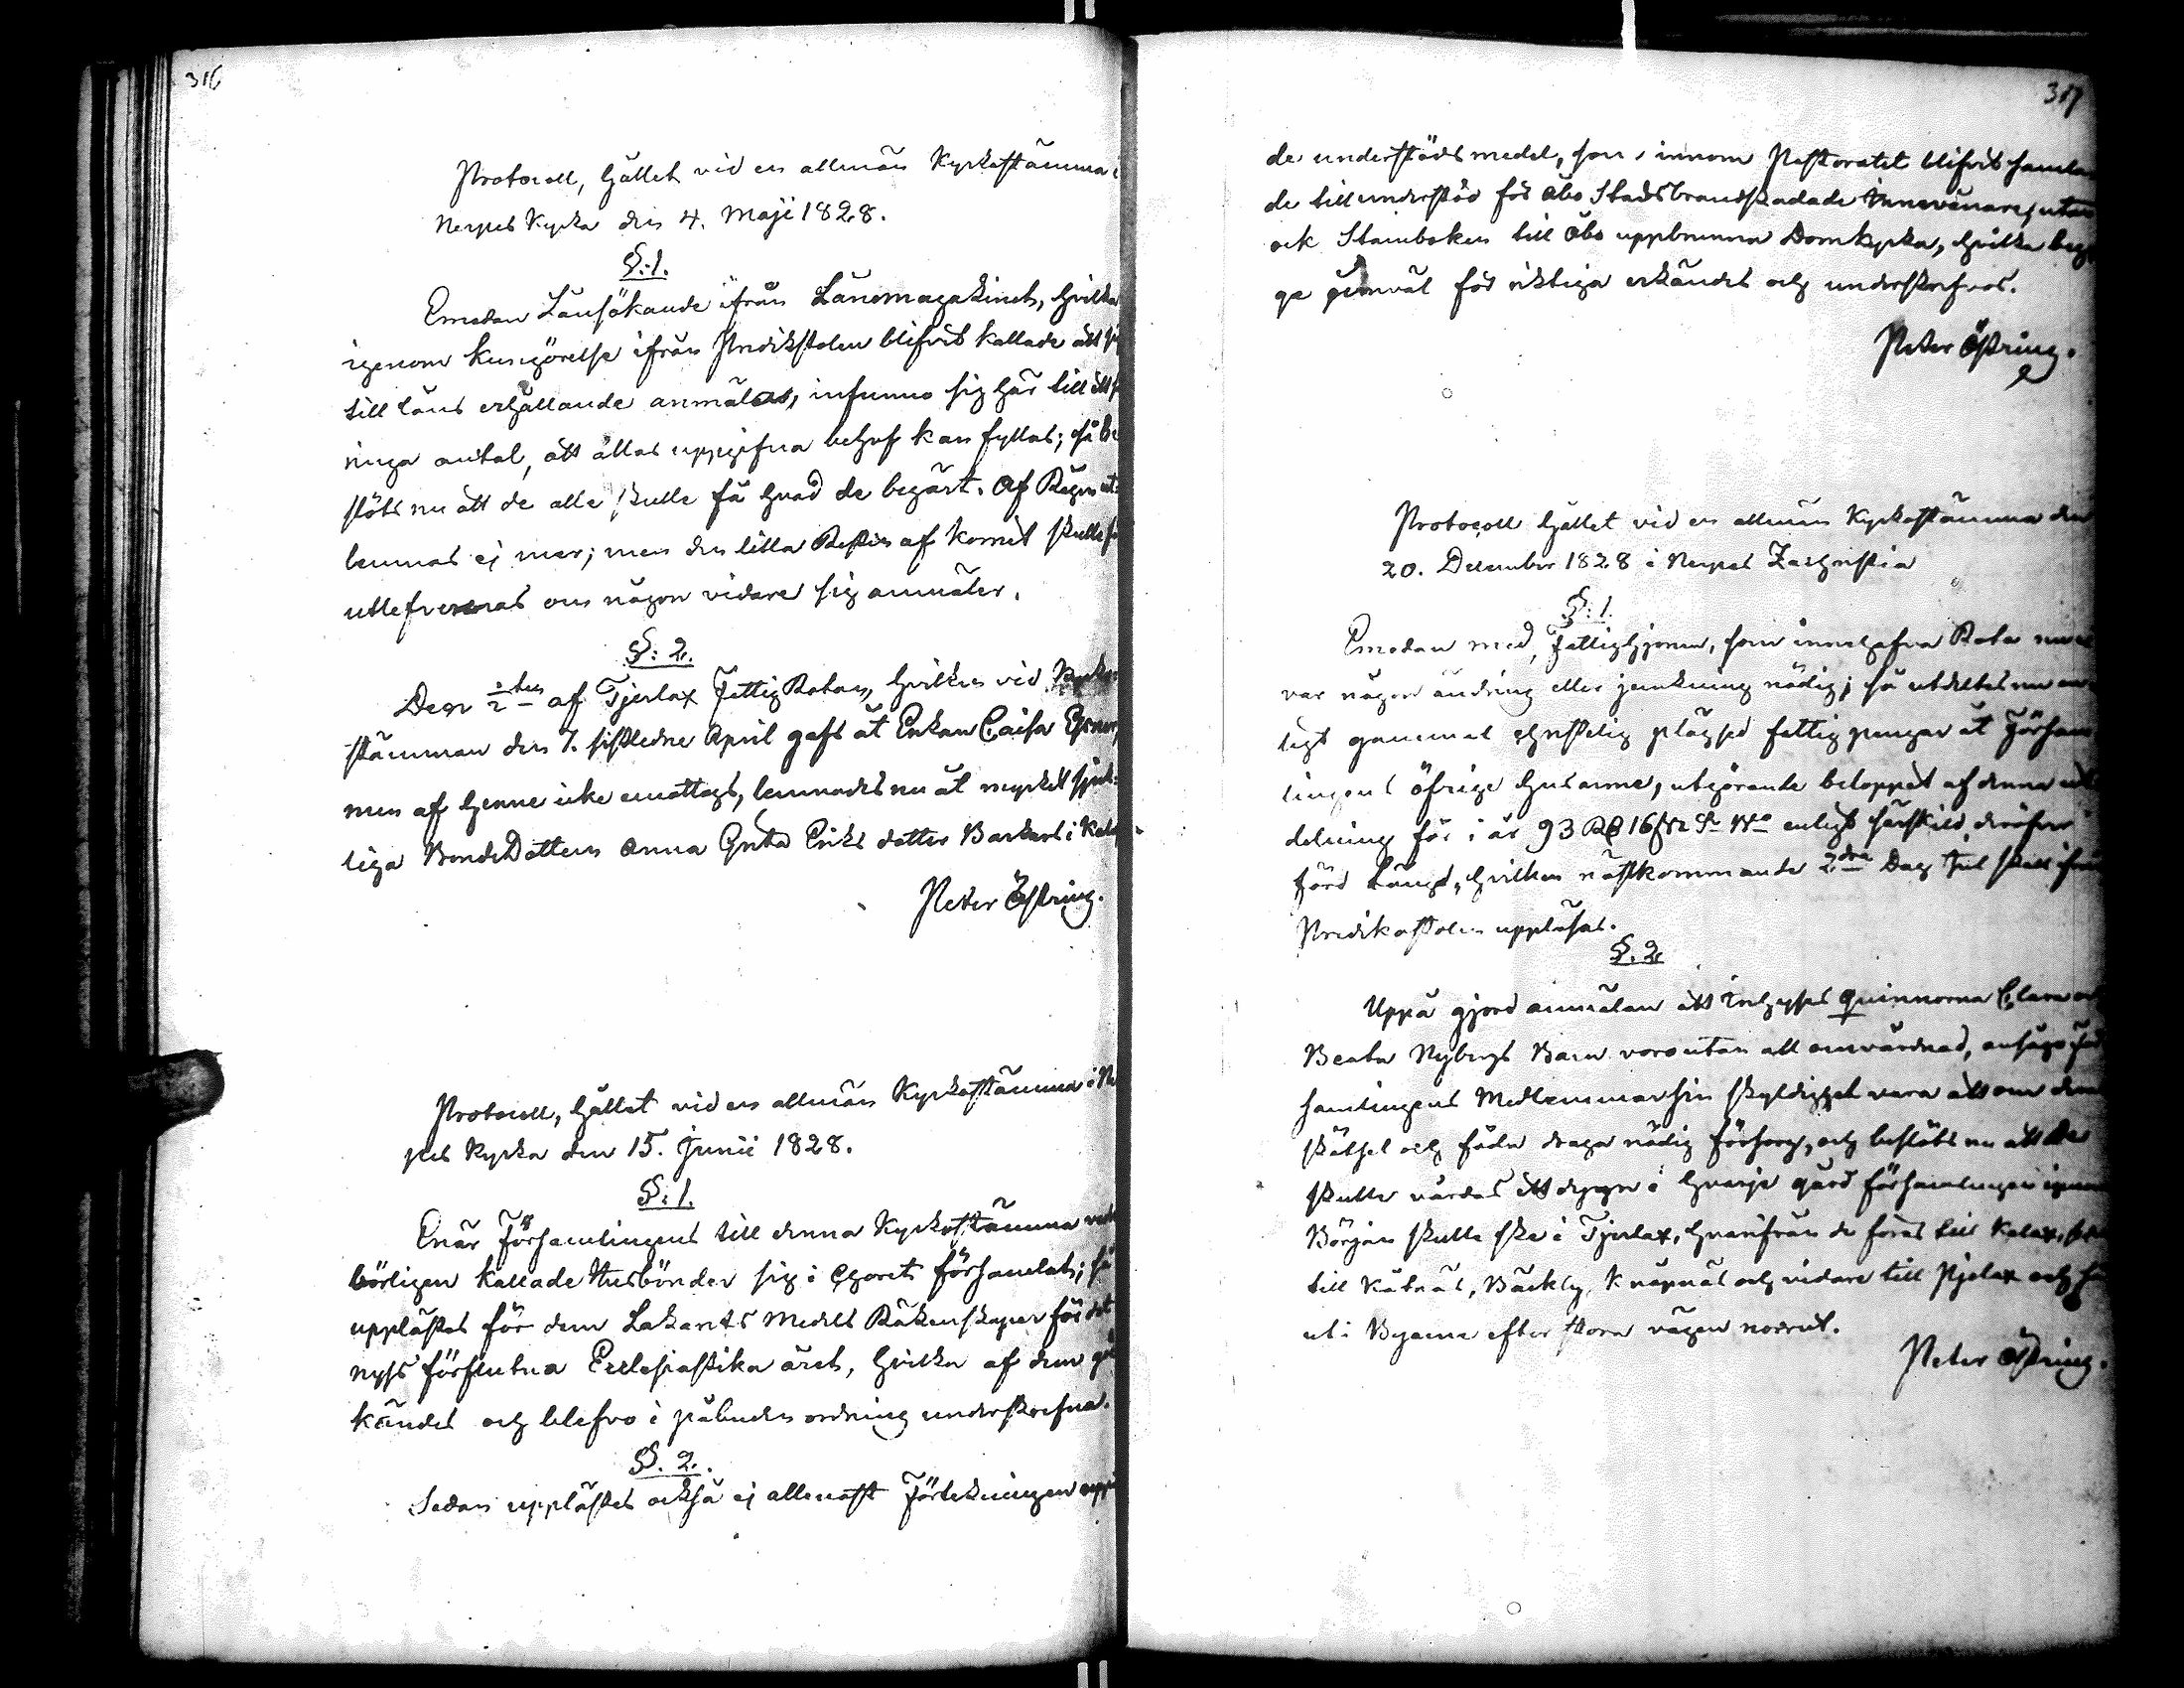 316
Protocoll, hållet vid en allmän Kyrkostämma i
Nerpes Kyrka den 4. Maji 1828.
§. 1.
Emedan Lånsökande ifrån Lånemagazinet, hvilka
igenom kungörelse ifrån Predikstolen blifvit kallade att
till låns erhållande anmälas, infunno sig här till ett
ringa antal, att allas uppgifna behof kan fyllas; så be
slöts nu att de alle skulle få hvad de begärt. Af Rågen ut
lemnas ej mer; men den lilla Resten af kornet skulle
utlefvereras om någon vidare sig anmäler.
§: 2.
Den 2:dre af Tjerlax Fattig Rotan, hvilken vid Kyrko
stämman den 7. sistledne April gafs åt Enkan Caisa
men af henne icke emottogs, lemnades nu åt mycket sjuk
liga BondeDottern Anna Greta Eriks dotter Barkars i
Peter Östring.
Protocoll, hållet vid en allmän Kyrkostämma i Ner
pes Kyrka den 15. Junii 1828.
§: 1.
Enär Församlingens till denna Kyrkostämma
börligen kallade Husbönder sig i Choret församlat; så
upplästes för dem Lakants Medels Räkenskaper för det
nyss förflutna Ecclesiastika året, hvilka af dem god
kändes och blefvo i påbuden ordning underskrefna.
§. 2.
Sedan upplästes också ej allenast Förtekningen uppå
317
de understödsmedel, som inom Pastoratet blifvit samla
de till understöd för Åbo Stads brandskadade innevånare, utan
ock Stamboken till Åbo uppbrunna Domkyrka, hvilka beg
ge jemväl för riktiga erkändes och underskrefvos.
Peter Östring.
Protocoll hållet vid en allmän Kyrkostämma den
20. December 1828 i Nerpes Zachristia
§: 1.
Emedan med Fattighjonen, som innehafva Rota
var någon ändring eller jemkning nödig; så utdeltes nu
ligt gammal christelig plägsed fattig pengar åt Församl
lingens öfrige husarme, utgörande beloppet af denna ut
delning för i år 93 Rd 16 enligt särskild deröfver
förd Längd, hvilken nästkommande 2:dra Dag Jul skall ifrån
Predikostolen uppläsas.
§. 2
Uppå gjord anmälan att Inhyses Qvinnorna Clara och
Beata Nybergs Barn voro utan all omvårdnad, ansågo För
samlingens Medlemmar sin skyldighet vara att om deras
skötsel och föda draga nödig försorg, och beslöts nu att de
skulle vårdas ett dygn i hvarje gård församlingen igenom
Början skulle ske i Tjerlax, hvarifrån de föras till Kalax,
till Kåtnäs, Bäckby, Knåpnäs och vidare till Pjelax och
ut i Byarne efter stora vägen norrut.
Peter Östring.